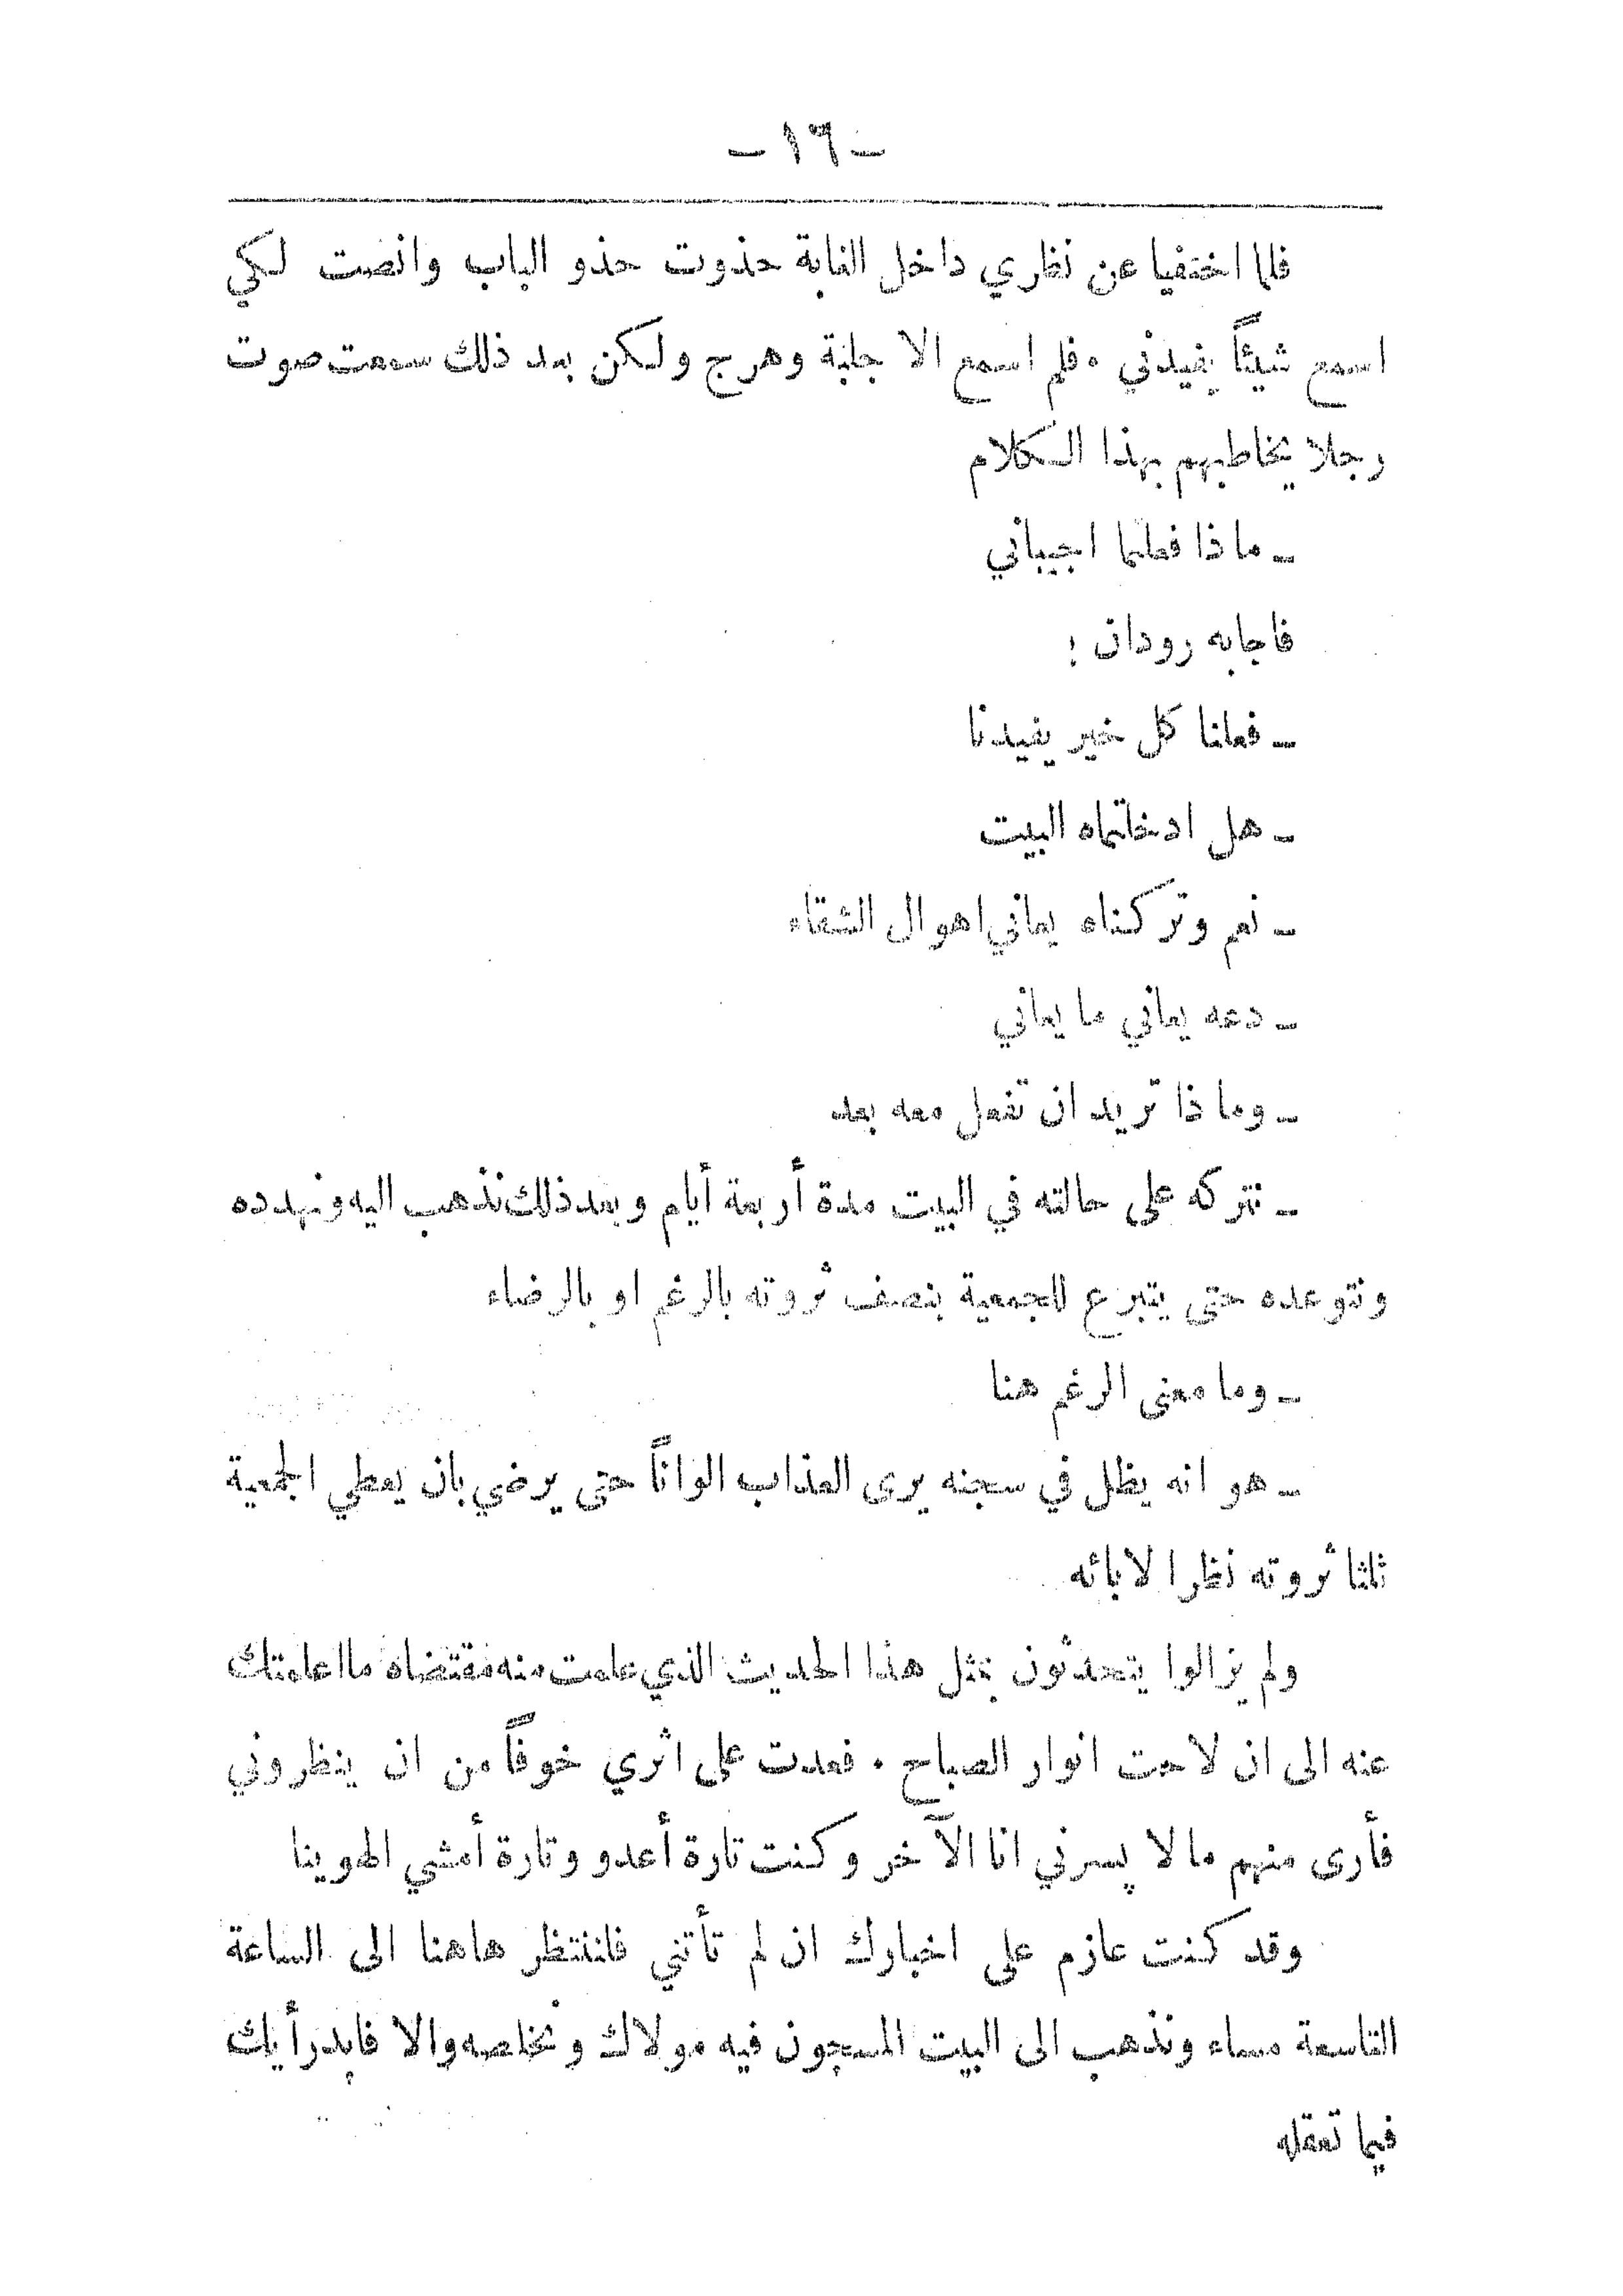 – ١٦ –
فلما اختفيا عن نظري داخل الغابة حذوت حذو الباب وانصت لكي
اسمع شيئاً يفيدني . فلم اسمع الا جلبة وهرج ولكن بعد ذلك سمعت صوت
رجلا يخاطبهم بهذا الكلام
– ماذا فعلتما اجيباني
فاجابه رودان :
– فعلنا كل خير يفيدنا
– هل ادخلتماه البيت
– نعم وتركناه يعاني اهوال الشقاء
– دعه يعاني ما يعاني
– وماذا تريد ان تفعل معه بعد
– نتركه على حالته في البيت مدة أربعة أيام وبعد ذلك نذهب اليه ونهدده
ونتوعده حتى يتبرع للجمعية بنصف ثروته بالرغم او بالرضاء
– وما معنى الرغم هنا
– هو انه يظل في سجنه يرى العذاب الواناً حتى يرضي بان يعطي الجمعية
ثلثا ثروته نظرا لابائه
ولم يزالوا يتحدثون بمثل هذا الحديث الذي علمت منه مقتضاه ما اعلمتك
عنه الى ان لاحت انوار الصباح . فعدت على اثري خوفاً من ان ينظروني
فأرى منهم ما لا يسرني انا الآخر وكنت تارة أعدو وتارة أمشي الهوينا
وقد كنت عازم على اخبارك ان لم تأتني فلننتظر هاهنا الى الساعة
التاسعة مساء ونذهب الى البيت المسجون فيه مولاك ونخلصه والا فابد رأيك
فيما تعقله